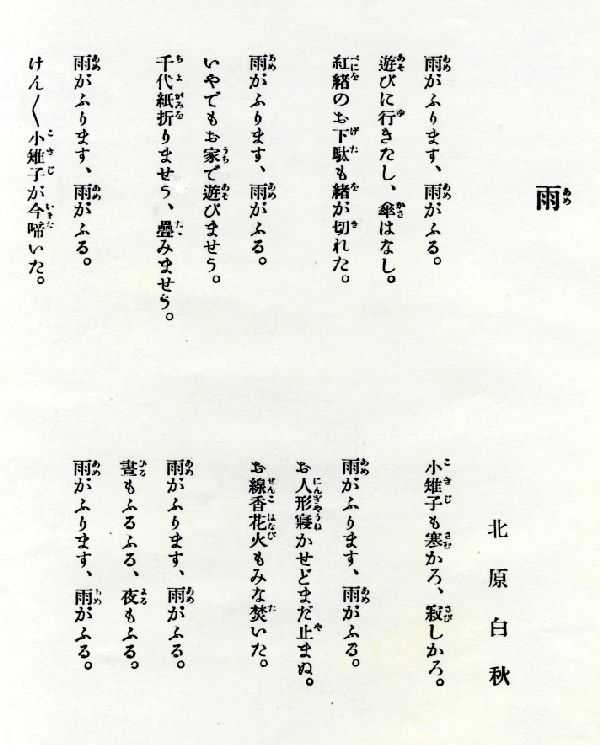 雨
北原白秋
雨がふります、雨がふる。
遊びに行きたし、傘はなし。
紅緒のお下駄も緒が切れた。
雨がふります、雨がふる。
いやでもお家で遊びませう。
千代紙折りませう、疊みませう。
雨がふります、雨がふる。
けん〳〵小雉子が今啼いた。
小雉子も寒かろ、寂しかろ。
雨がふります、雨がふる。
お人形寢かせどまだ止まぬ。
お線香花火もみな焚いた。
雨がふります、雨がふる。
晝もふるふる、夜もふる。
雨がふります、雨がふる。